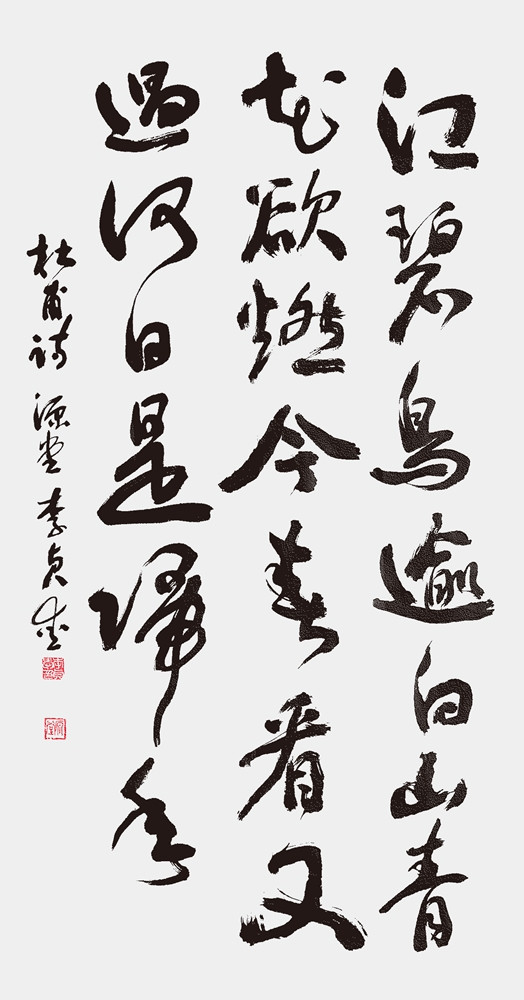 江碧鳥逾白山青
花欲燃今春看又
過何日是歸年
杜甫詩 源堂 李貞